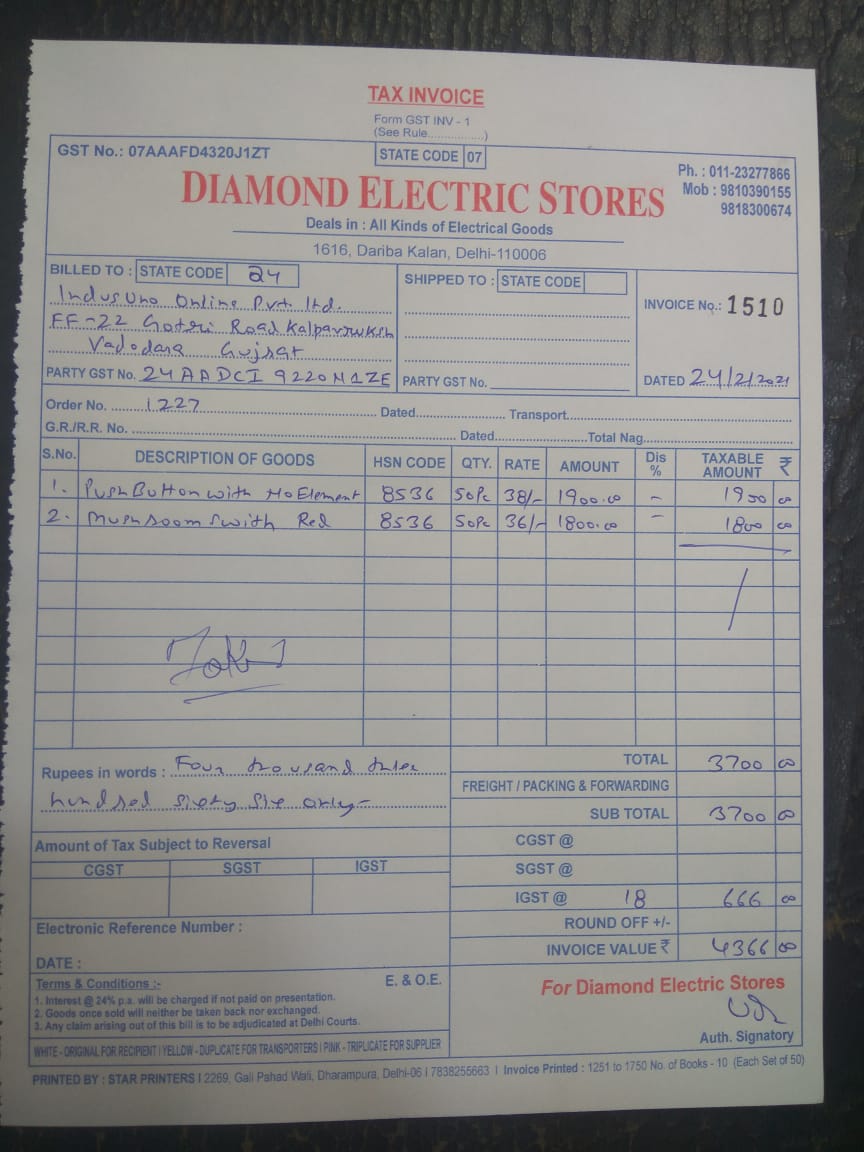 TAX INVOICE
Form GST INV - 1
(See Rule...............)
GST No.: 07AAAFD4320J1ZT
STATE CODE 07
Ph. : 011-23277866
Mob : 9810390155
9818300674
DIAMOND ELECTRIC STORES
Deals in : All Kinds of Electrical Goods
1616, Dariba Kalan, Delhi-110006
BILLED TO : STATE CODE 24
IndusUno Online Pvt. Ltd.
FF-22 Gotri Road
Vadodara Gujrat
PARTY GST No. 24AADCI9220M1ZE
SHIPPED TO : STATE CODE
PARTY GST No.
INVOICE No.: 1510
DATED 24/2/2021
Order No. 1227 Dated............... Transport...............
G.R./R.R. No. ............... Dated...............Total Nag...............
S.No. DESCRIPTION OF GOODS HSN CODE QTY. RATE AMOUNT Dis % TAXABLE AMOUNT ₹
1. Push Button with No Element 8536 50Pc 38/- 1900.00 - 1900 00
2. 8536 50Pc 36/- 1800.00 - 1800 00
Rupees in words : Four thousand three
hundred sixty six only-
TOTAL 3700 00
FREIGHT / PACKING & FORWARDING
SUB TOTAL 3700 00
Amount of Tax Subject to Reversal
CGST SGST IGST
CGST @
SGST @
IGST @ 18 666 00
ROUND OFF +/-
INVOICE VALUE ₹ 4366 00
Electronic Reference Number :
DATE :
Terms & Conditions :- E. & O.E.
1. Interest @ 24% p.a. will be charged if not paid on presentation.
2. Goods once sold will neither be taken back nor exchanged.
3. Any claim arising out of this bill is to be adjudicated at Delhi Courts.
For Diamond Electric Stores
Auth. Signatory
WHITE - ORIGINAL FOR RECIPIENT I YELLOW - DUPLICATE FOR TRANSPORTERS I PINK - TRIPLICATE FOR SUPPLIER
PRINTED BY : STAR PRINTERS I 2269, Gali Pahad Wali, Dharampura, Delhi-06 I 7838255663 I Invoice Printed : 1251 to 1750 No. of Books - 10 (Each Set of 50)